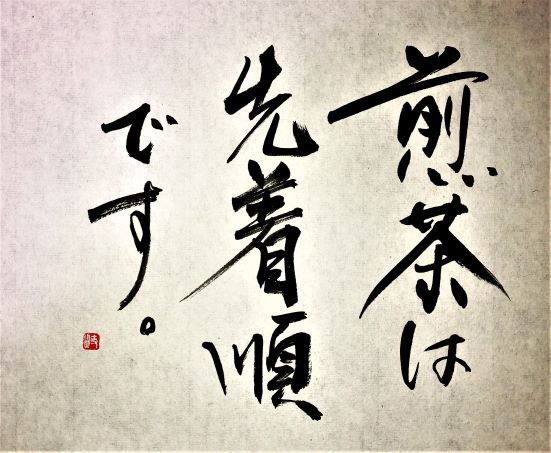 煎茶は
先着順
です。